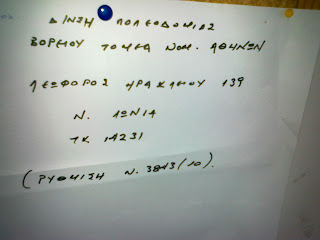 Δ/ΝΣΗ ΠΟΛΕΟΔΟΜΙΑΣ
ΒΟΡΕΙΟΥ ΤΟΜΕΑ ΝΟΜ. ΑΘΗΝΩΝ
ΛΕΩΦΟΡΟΣ ΗΡΑΚΛΕΙΟΥ 139
Ν. ΙΩΝΙΑ
ΤΚ 14231
(ΡΥΘΜΙΣΗ Ν. 3843(10).